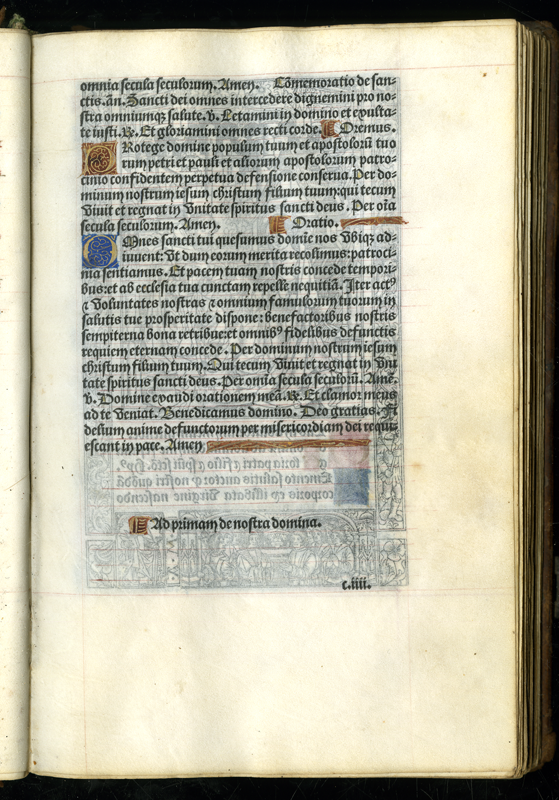 omnia secula seculorum. Amen. Cõmemoratio de san-
ctis. añ. Sancti dei omnes intercedere dignemini pro no-
stra omniumqꝫ salute. v. Letamini in domino et exulta-
te iusti. ꝶ. Et gloriamini omnes recti corde. Oremus.
Rotege domine populum tuum et apostolorũ tuo
rum petri et pauli et aliorum apostolorum patro-
cinio confidentem perpetua defensione conserua. Per do-
minum nostrum iesum christum filium tuum: qui tecum
viuit et regnat in vnitate spiritus sancti deus. Per oĩa
secula seculorum. Amen. Oratio.
OMnes sancti tui quesumus domie nos vbiqꝫ ad-
iuuent: vt dum eorum merita recolimus: patroci-
nia sentiamus. Et pacem tuam nostris concede tempori-
bus: et ab ecclesia tua cunctam repelle nequitiã. Iter actꝰ
⁊ voluntates nostras ⁊ omnium famulorum tuorum in
salutis tue prosperitate dispone: benefactoribus nostris
sempiterna bona retribue: et omnibꝰ fidelibus defunctis
requiem eternam concede. Per dominum nostrum iesum
christum filium tuum. Qui tecum viuit et regnat in vni
tate spiritus sancti deus. Per omia secula seculorũ. Amẽ.
v. Domine exaudi orationem meã. ꝶ. Et clamor meus
ad te veniat. Benedicamus domino. Deo gratias. Fi
delium anime defunctorum per misericordiam dei requi
escant in pace. Amen.
Ad primam de nostra domina.
c.iiii.